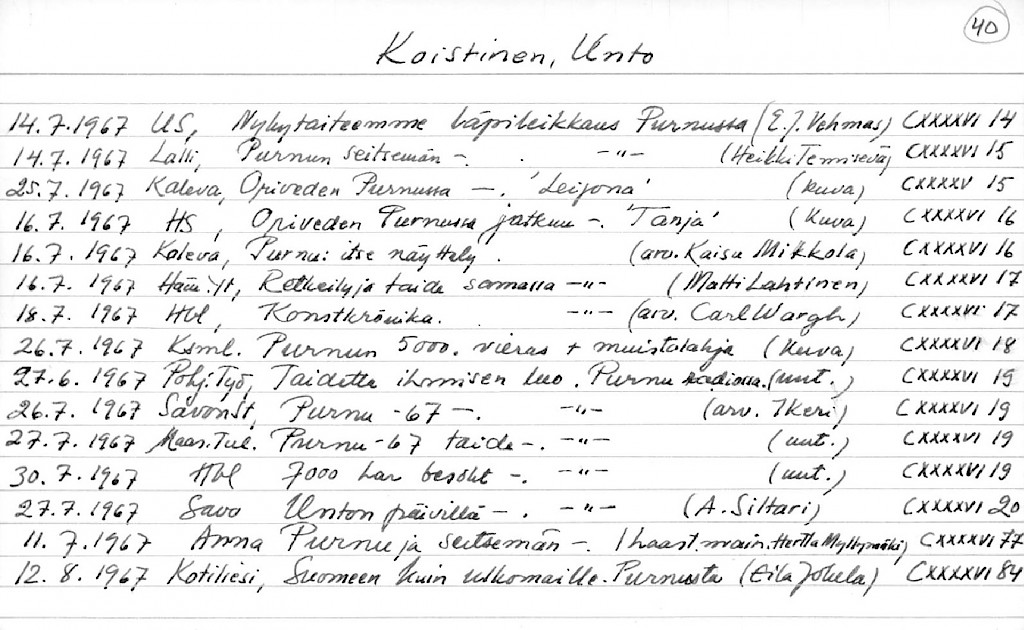 40
Koistinen, Unto
14.7.1967 US, Nykytaiteemme läpileikkaus Purnussa (E.J. Vehmas) CXXXXVI 14
14.7.1967 Lalli, Purnun seitsemän -. . -"- (Heikki Temisevä) CXXXXVI 15
25.7.1967 Kaleva, Oriveden Purnussa -. 'Leijona' (kuva) CXXXXV 15
16.7.1967 HS, Oriveden Purnussa jatkuu -. 'Tanja' (kuva) CXXXXVI 16
16.7.1967 Kaleva, Purnu: itse näyttely. (arv. Kaisu Mikkola) CXXXXVI 16
16.7.1967 Häm.Yt, Retkeily ja taide samassa -"- (Matti Lahtinen) CXXXXVI 17
18.7.1967 Hbl, Konstkrönika. . -"- (arv. Carl Wargh) CXXXXVI 17
26.7.1967 Ksml. Purnun 5000. vieras + muistolahja (kuva) CXXXXVI 18
27.6.1967 Pohj.Työ, Taidetta ihmisen luo. Purnu radiossa. (uut.) CXXXXVI 19
26.7.1967 SavonSt, Purnu -67 -. -"- (arv. IKeri) CXXXXVI 19
27.7.1967 Maas.Tul. Purnu -67 taide -. -"- (uut.) CXXXXVI 19
30.7.1967 Hbl 7000 har besökt -. -"- (uut.) CXXXXVI 19
27.7.1967 Savo Unton päivillä -. -"- (A. Siltari) CXXXXVI 20
11.7.1967 Anna Purnu ja seitsemän -. 1 haast. main. Hertta Myllymäki) CXXXXVI 77
12.8.1967 Kotiliesi, Suomeen kuin ulkomaille. Purnusta (Eila Jokela) CXXXXVI 84